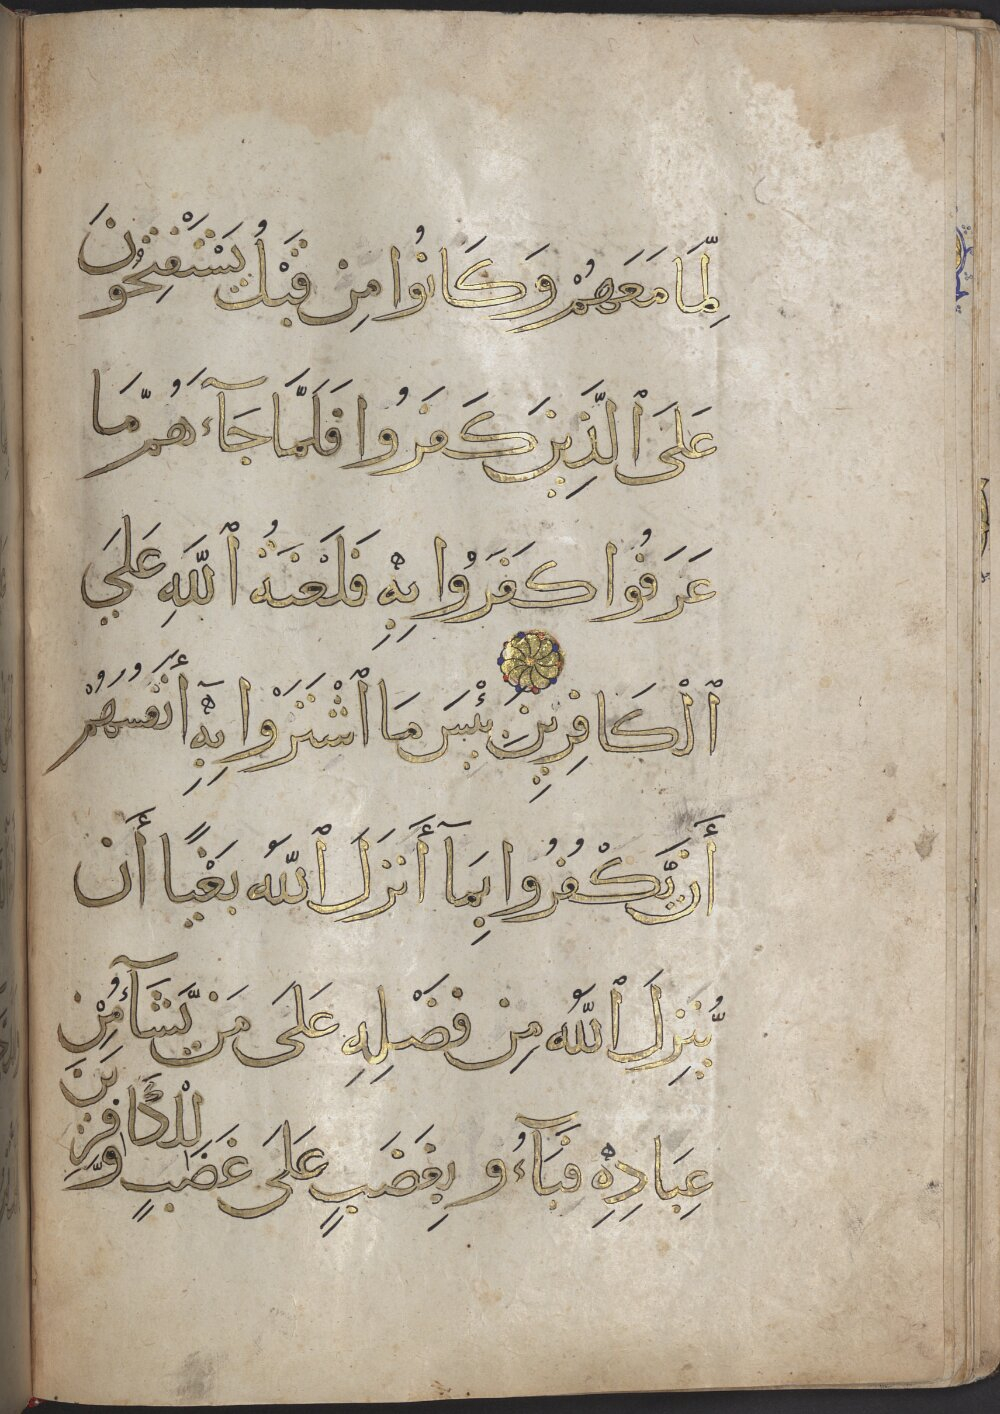 لِّمَا مَعَهُمْ وَكَانُوا مِن قَبْلُ يَسْتَفْتِحُونَ
عَلَى ٱلَّذِينَ كَفَرُوا فَلَمَّا جَآءَهُم مَّا
عَرَفُوا كَفَرُوا بِهِ فَلَعْنَةُ ٱللَّهِ عَلَي
ٱلْكَافِرِينَ بِئْسَ مَا ٱشْتَرَوْا بِهِٓ أَنْفُسَهُمْ
أَن يَّكْفُرُوا بِمَآ أَنزَلَ ٱللَّهُ بَغْيًا أَن
يُّنَزِلَ ٱللَّهُ مِن فَضْلِهِ عَلَى مَن يَّشَآءُ مِنْ
عِبَادِهِ فَبَآءُو بِغَضَبٍ عَلَى غَضَبٍ وَّلِلْكَافِرِينَ